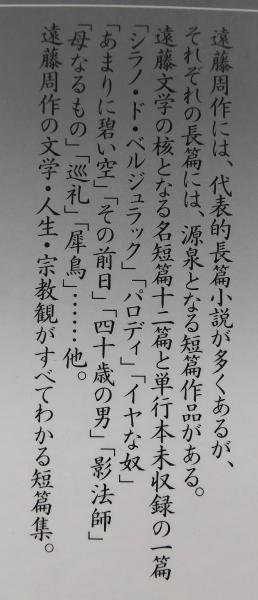 遠藤周作には、代表的長篇小説が多くあるが、
それぞれの長篇には、源泉となる短篇作品がある。
遠藤文学の核となる名短篇十二篇と単行本未収録の一篇
「シラノ・ド・ベルジュラック」「パロディ」「イヤな奴」
「あまりに碧い空」「その前日」「四十歳の男」「影法師」
「母なるもの」「巡礼」「犀鳥」……他。
遠藤周作の文学・人生・宗教観がすべてわかる短篇集。